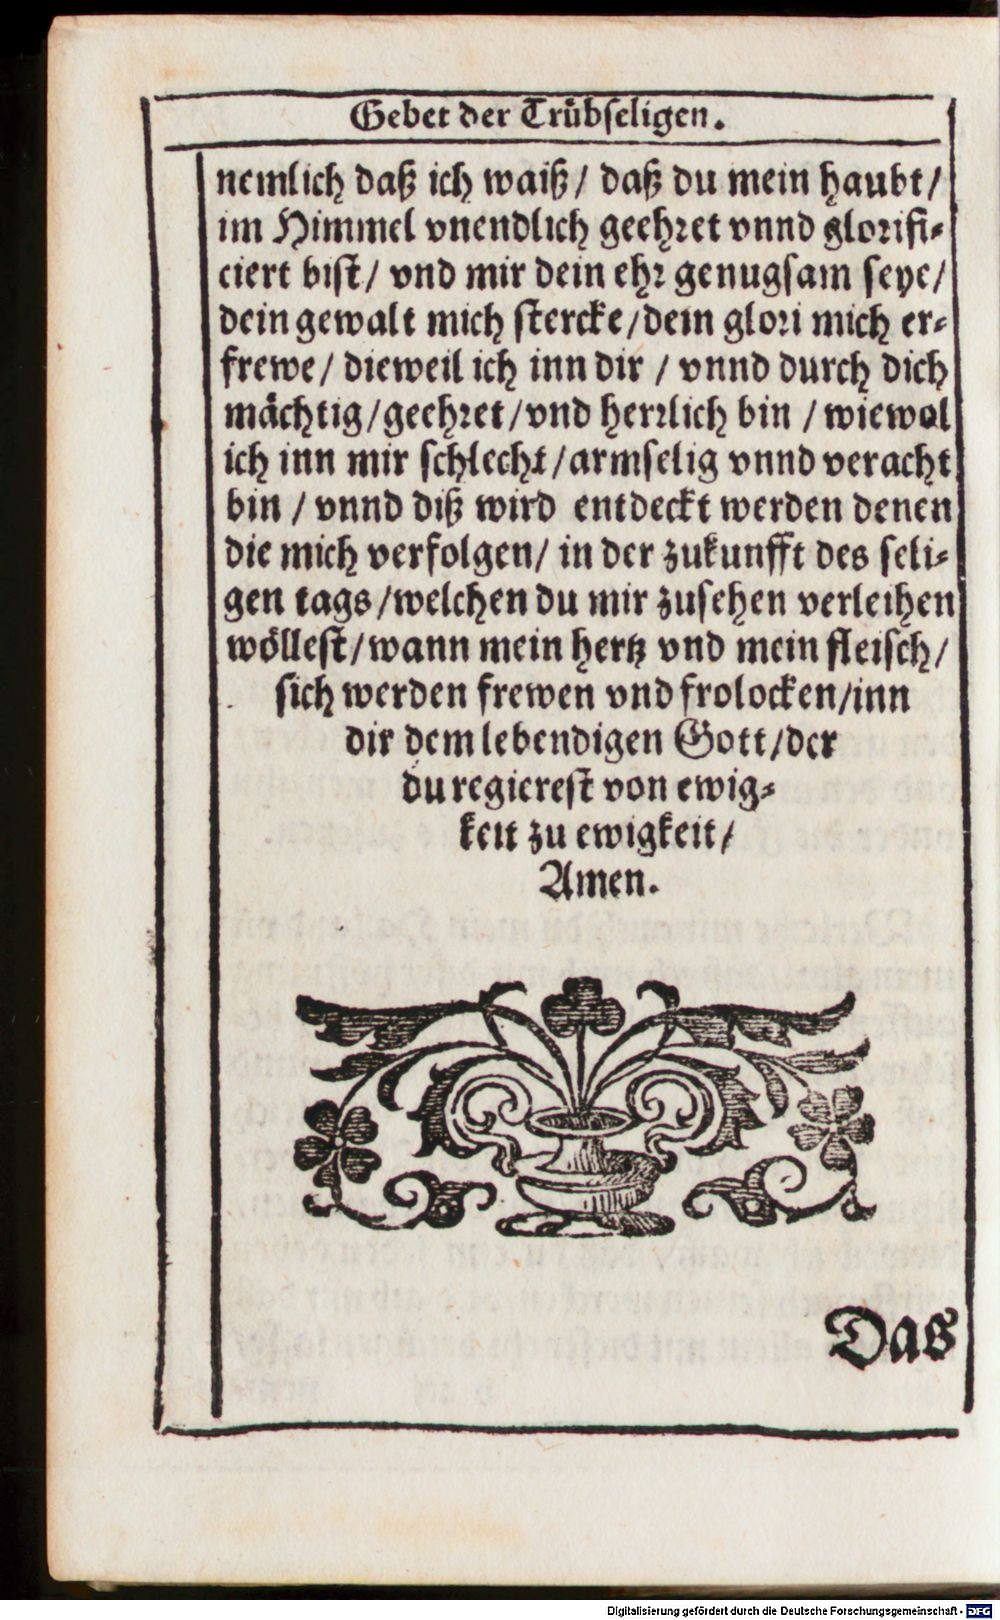 Gebet der Trübseligen.
nemlich daß ich waiß/ daß du mein haubt/
im Himmel vnendlich geehret vnnd glorifi⸗
ciert bist/ vnd mir dein ehr genugsam seye/
dein gewalt mich stercke/dein glori mich er⸗
frewe/ dieweil ich inn dir / vnnd durch dich
mächtig/geehret/vnd herrlich bin / wiewol
ich inn mir schlecht/armselig vnnd veracht
bin / vnnd diß wird entdeckt werden denen
die mich verfolgen/ in der zukunfft des seli⸗
gen tags/welchen du mir zusehen verleihen
wöllest/wann mein hertz vnd mein fleisch/
sich werden frewen vnd frolocken/inn
dir dem lebendigen Gott/der
du regierest von ewig⸗
keit zu ewigkeit/
Amen.
Das
Digitalisierung gefördert durch die Deutsche Forschungsgemeinschaft - DFG